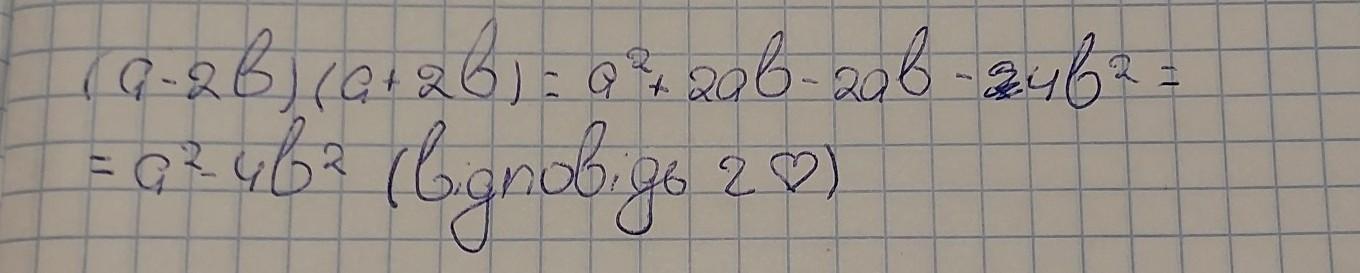 (a - 2b)(a + 2b) = a² + 2ab - 2ab - 4b² =
= a² - 4b² (відповідь 2 ♡)